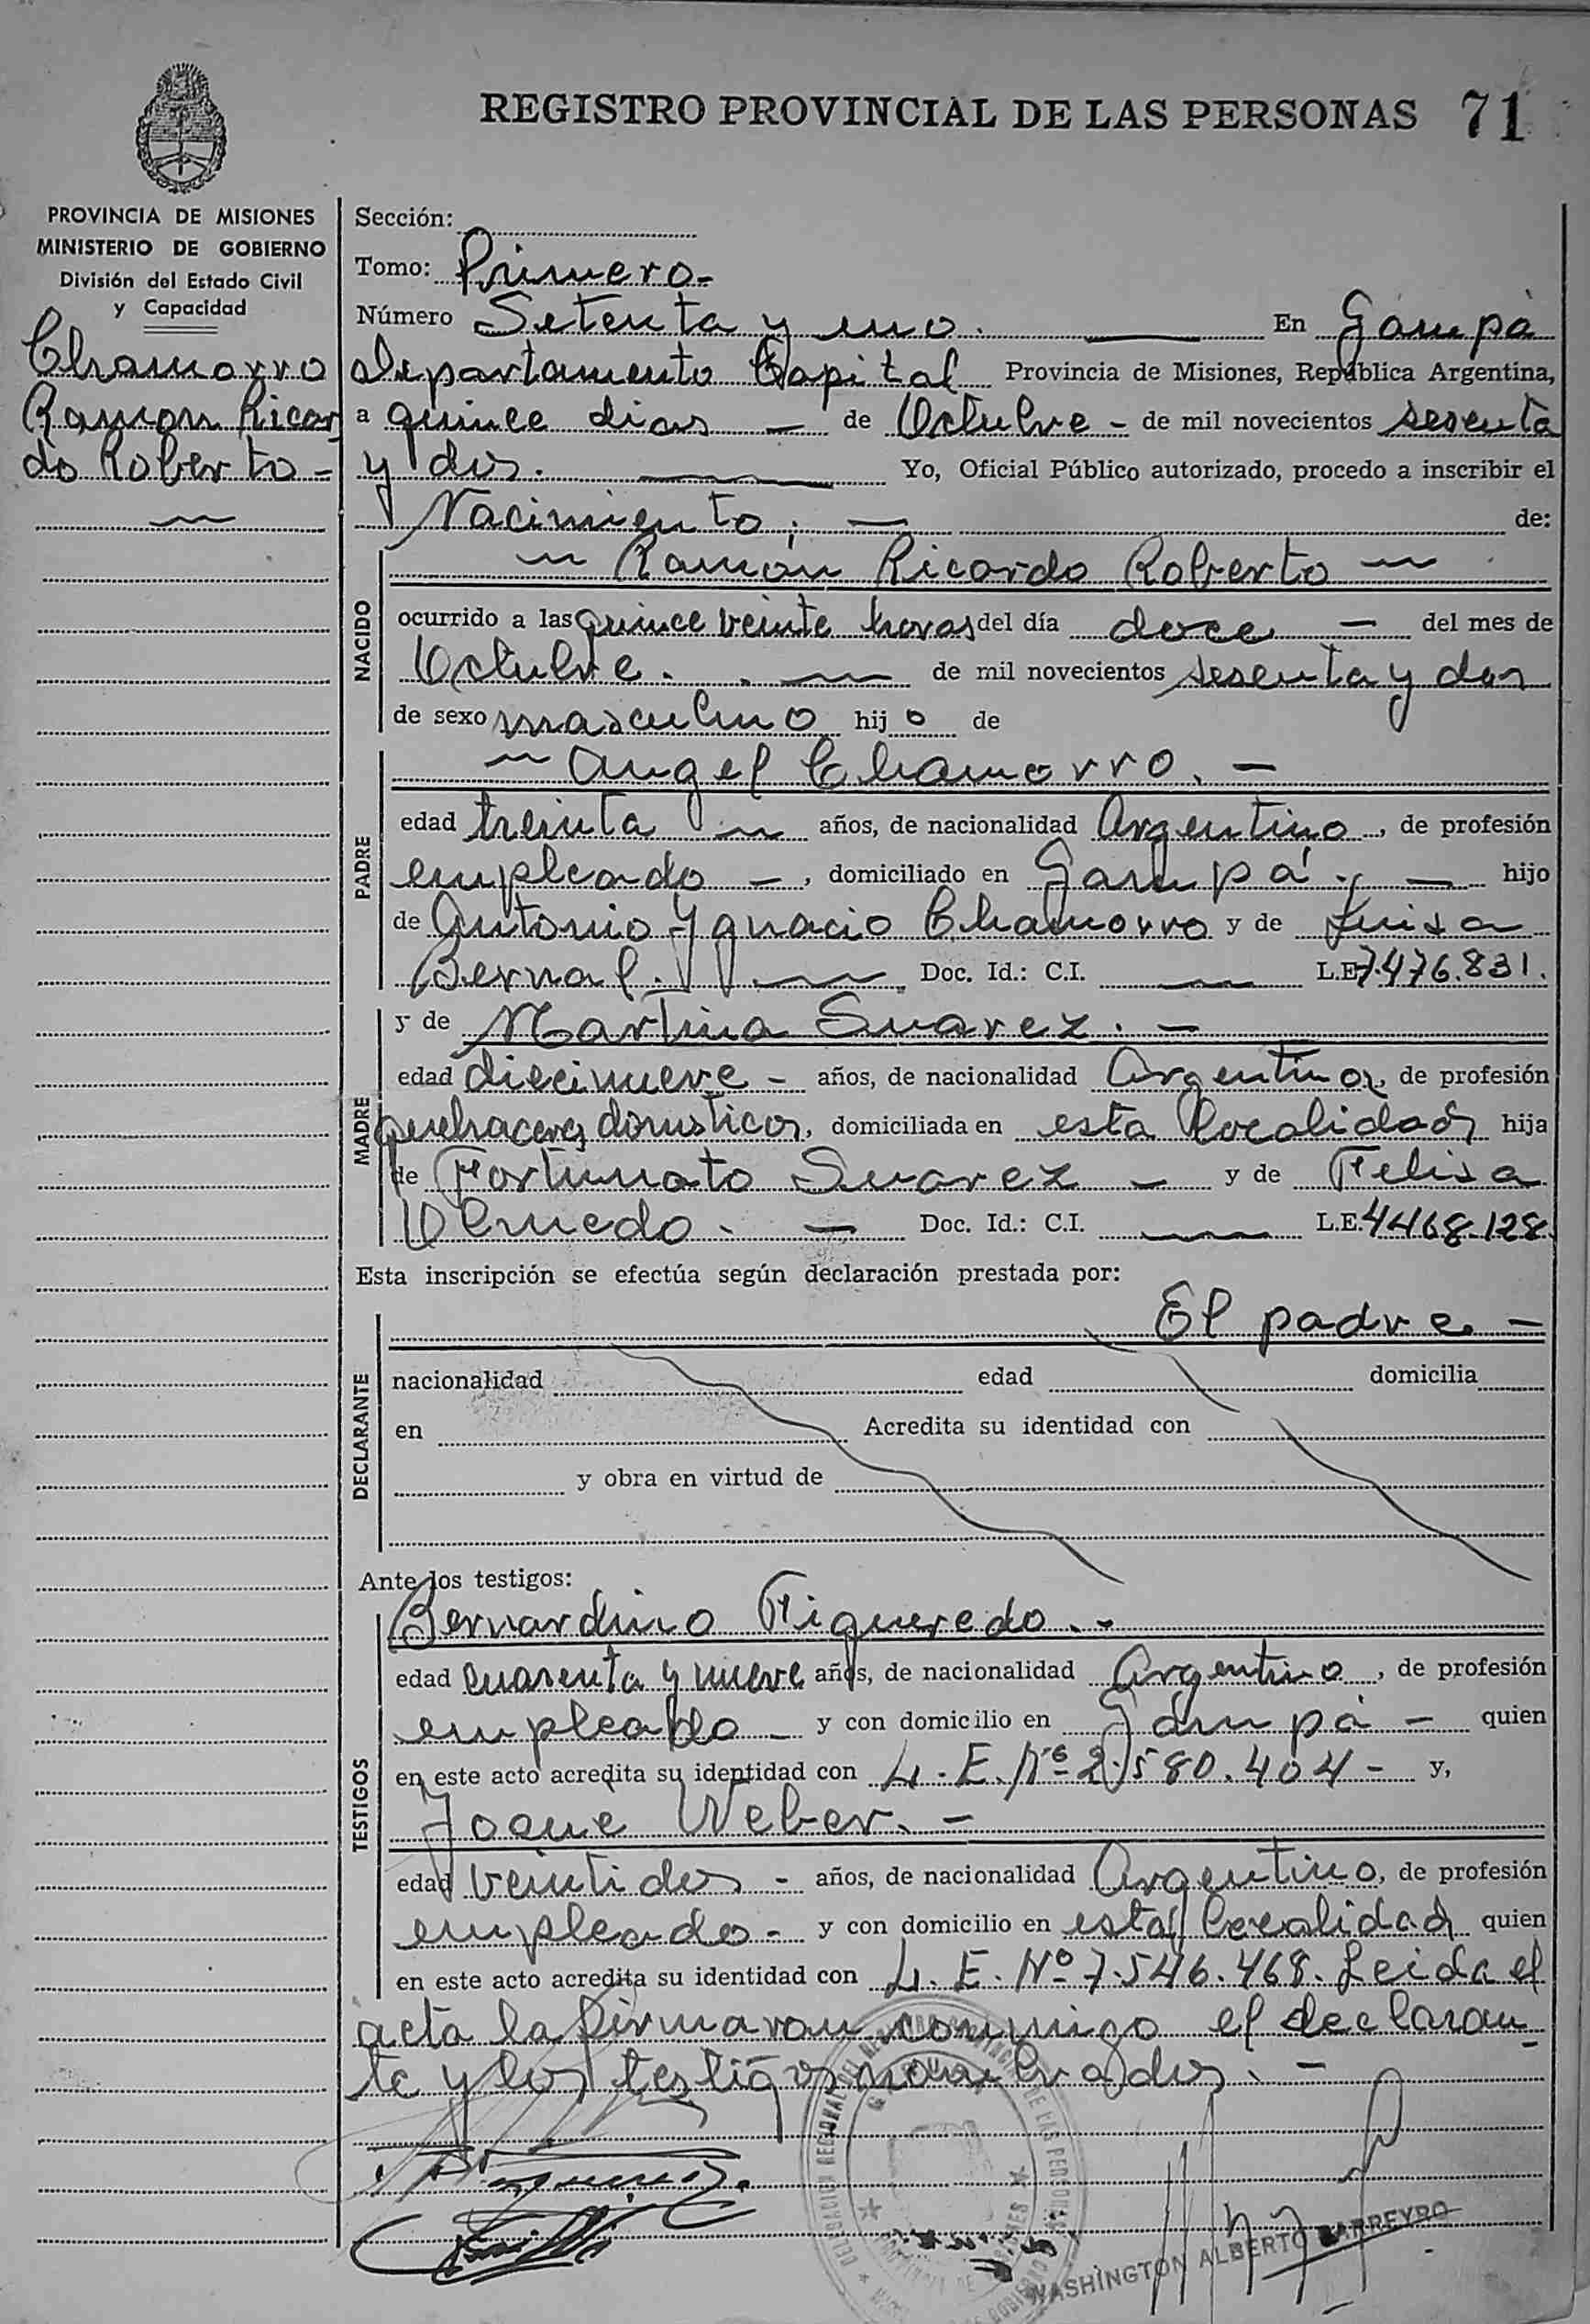 REGISTRO PROVINCIAL DE LAS PERSONAS 71
PROVINCIA DE MISIONES
MINISTERIO DE GOBIERNO
División del Estado Civil
y Capacidad
Chamorro
Ramon Ricar
do Roberto -
Sección:
Tomo: Primero -
Número Setenta y uno. En Garupá
Departamento Capital Provincia de Misiones, República Argentina,
a quince dias - de Octubre - de mil novecientos sesenta
y dos. Yo, Oficial Público autorizado, procedo a inscribir el
Nacimiento; - de:
NACIDO
Ramón Ricardo Roberto
ocurrido a las quince veinte horas del día doce - del mes de
Octubre. de mil novecientos sesenta y dos
de sexo masculino hijo de
PADRE
Angel Chamorro. -
edad treinta años, de nacionalidad Argentino, de profesión
empleado -, domiciliado en Garupá. - hijo
de Antonio Ygnacio Chamorro y de Luisa
Bernal. Doc. Id.: C.I. L.E. 7.476.831.
MADRE
y de Martina Suarez. -
edad diecinueve - años, de nacionalidad Argentina, de profesión
quehaceres domesticos, domiciliada en esta localidad hija
de Fortunato Suarez - y de Felisa
Olmedo. - Doc. Id.: C.I. L.E. 4468.128.
Esta inscripción se efectúa según declaración prestada por:
DECLARANTE
El padre. -
nacionalidad edad domicilia
en Acredita su identidad con
y obra en virtud de
Ante los testigos:
TESTIGOS
Bernardino Figueredo. -
edad cuarenta y nueve años, de nacionalidad Argentino, de profesión
empleado - y con domicilio en Garupá - quien
en este acto acredita su identidad con L. E. Nº 2.580.404 - y,
Josué Weber. -
edad veintidos - años, de nacionalidad Argentino, de profesión
empleado - y con domicilio en esta localidad quien
en este acto acredita su identidad con L. E. Nº 7.546.468. Leida el
acta la firmaron conmigo el declaran
te y los testigos nombrados. -
WASHINGTON ALBERTO BARREYRO